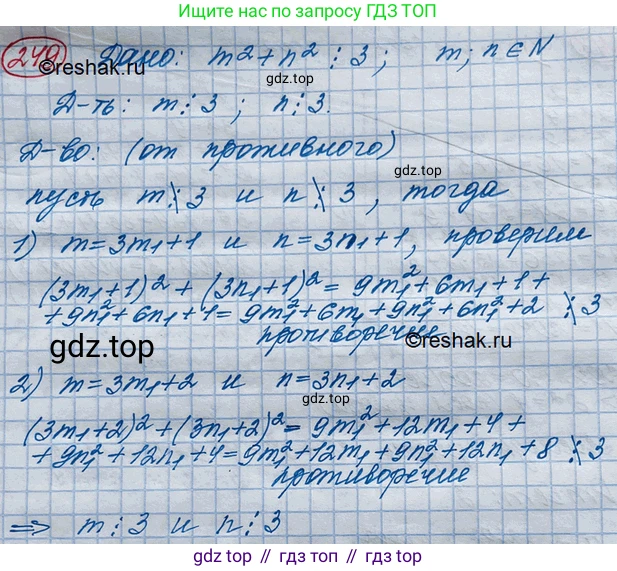 Ищите нас по запросу ГДЗ ТОП
249 Дано: m²+n² ⋮ 3; m; n ∈ N
©reshak.ru
Д-ть: m⋮3; n⋮3.
gdz.top
Д-во: (от противного)
gdz.top
пусть m⋮̸3 и n⋮̸3, тогда
1) m=3m₁+1 и n=3n₁+1, проверим
(3m₁+1)²+(3n₁+1)²=9m₁²+6m₁+1+
+9n₁²+6n₁+1=9m₁²+6m₁+9n₁²+6n₁²+2 ⋮̸3
противоречие
gdz.top
©reshak.ru
2) m=3m₁+2 и n=3n₁+2
(3m₁+2)²+(3n₁+2)²=9m₁²+12m₁+4+
+9n₁²+12n₁+4=9m₁²+12m₁+9n₁²+12n₁+8 ⋮̸3
противоречие
⇒ m⋮3 и n⋮3
gdz.top // гдз.топ // gdz.top // гдз.топ